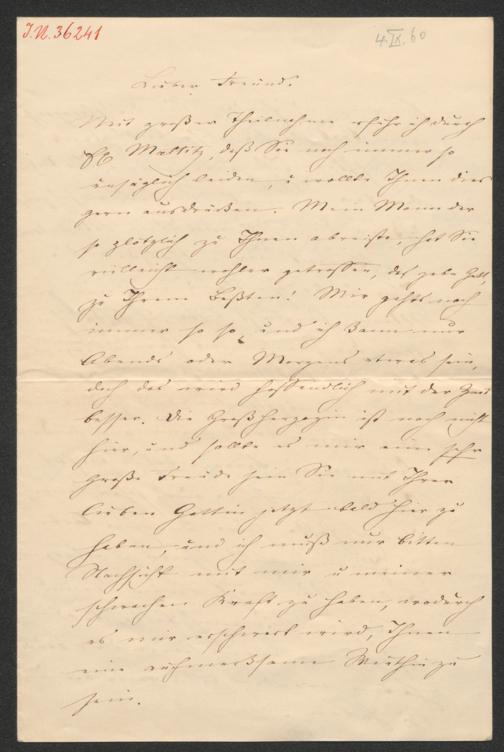 J.N. 36241
4.IX.60
Lieber Freund.
Mit großer Theilnahme erfuhr ich durch
Maltitz, daß Sie noch immer so
unsäglich leiden, u wollte Ihnen dies
gern ausdrücken. Mein Mann der
so plötzlich zu Ihnen abreiste, hat Sie
vielleicht wohler getroffen, das gebe Gott,
zu Ihrem Besten! Mir gehts noch
immer so so, und ich kann nur
Abends oder Morgens etwas sein,
doch das wird hoffendlich mit der Zeit
besser. Die Großherzogin ist noch nicht
hier, und sollte es mir eine sehr
große Freude sein Sie mit Ihrer
lieben Gattin jetzt bald hier zu
haben, und ich muß nur bitten
Nachsicht mit mir u meiner
schwachen Kraft zu haben, wodurch
es mir erschwert wird, Ihnen
eine aufmerksame Wirthin zu
sein.